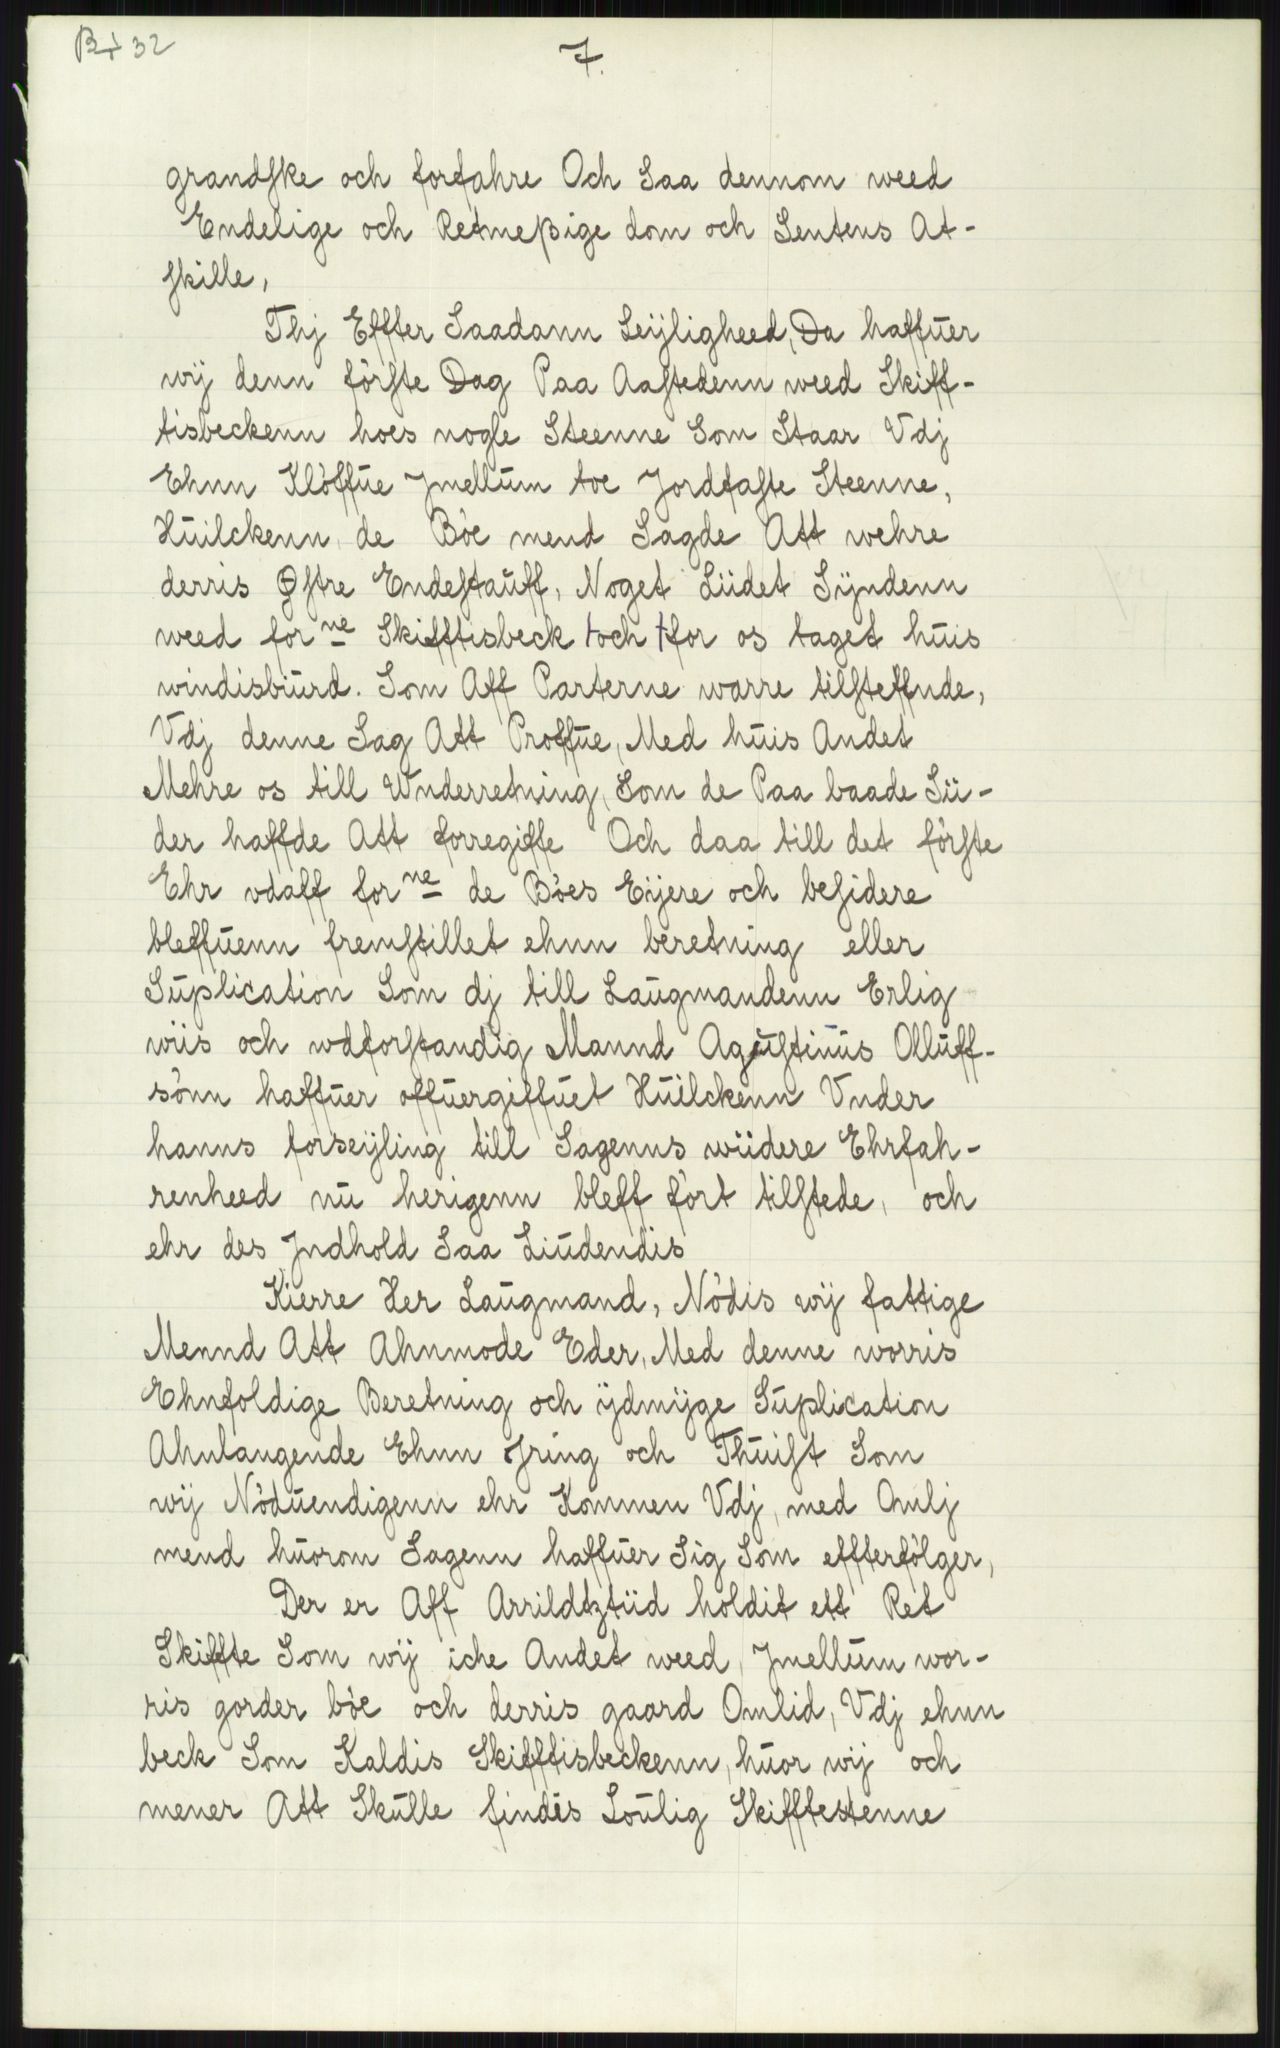 32
7.
grandske och forfahre Och Saa dennom weed
Endelige och Retmeßige dom och Sentens At-
skille,
Thj Effter Saadann Leÿligheed, Da haffuer
wÿ denn förste Dag Paa Aastedenn weed Skiff-
tisbeckenn hoes nogle Steenne Som Staar Vdj
Ehnn Klöffue Jmellum toe Jordfaste Steenne,
Huilckenn de Böe mend Sagde Att wehre
derris Østre Endestauff, Noget Liidet Sÿndenn
weed for ne Skifftisbeck och for os taget huis
windisbiurd. Som Aff Parterne warre tilsteffnde,
Vdj denne Sag Att Proffue, Med huis Andet
Mehre os till Wnderretning, Som de Paa baade Sii-
der haffde Att forregiffe Och daa till det förste
Ehr vdaff for ne de Böes Eÿere och besidere
bleffuenn fremstillet ehnn beretning eller
Suplication Som dj till Laugmandenn Erlig
wiis och wdforstandig Mannd Agustinus Olluff-
sönn haffuer offuergiffuet Huilckenn Vnder
hanns forseÿling till Sagenns wiidere Ehrfah-
renheed nu herigenn bleff fört tilstede, och
ehr des Jndhold Saa Liudendis
Kierre Her Laugmand, Nödis wÿ fattige
Mennd Att Ahnmode Eder, Med denne worris
Ehnfoldige Beretning och ÿdmÿge Suplication
Ahnlangende Ehnn Jring och Thuist Som
wÿ Nöduendigenn ehr Kommen Vdj, med Omlj
mend huorom Sagenn haffuer Sig Som effterfölger,
Der er Aff Arrildtztiid holdit ett Ret
Skiffte Som wÿ iche Andet weed, Jmellum wor-
ris gorder böe och derris gaard Omlid, Vdj ehnn
beck Som Kaldis Skifftisbeckenn, huor wÿ och
mener Att Skulle findes Loulig Skifftestenne